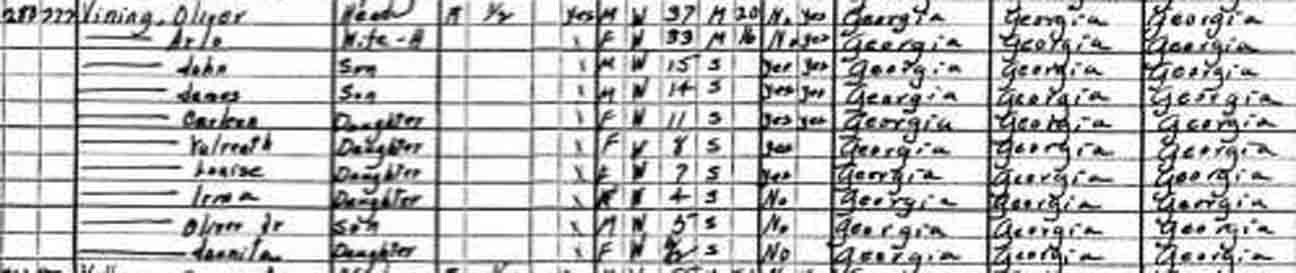 Vining, Oliver Head R ½ yes M W 37 M 20 No yes Georgia Georgia Georgia
Wife-H F W 33 M 16 No yes Georgia Georgia Georgia
John Son M W 15 S yes yes Georgia Georgia Georgia
James Son M W 14 S yes yes Georgia Georgia Georgia
Daughter F W 11 S yes yes Georgia Georgia Georgia
Daughter F W 8 S yes Georgia Georgia Georgia
Louise Daughter F W 7 S yes Georgia Georgia Georgia
Irma Daughter W 4 S No Georgia Georgia Georgia
Oliver Jr Son M W S No Georgia Georgia Georgia
Daughter F W S No Georgia Georgia Georgia